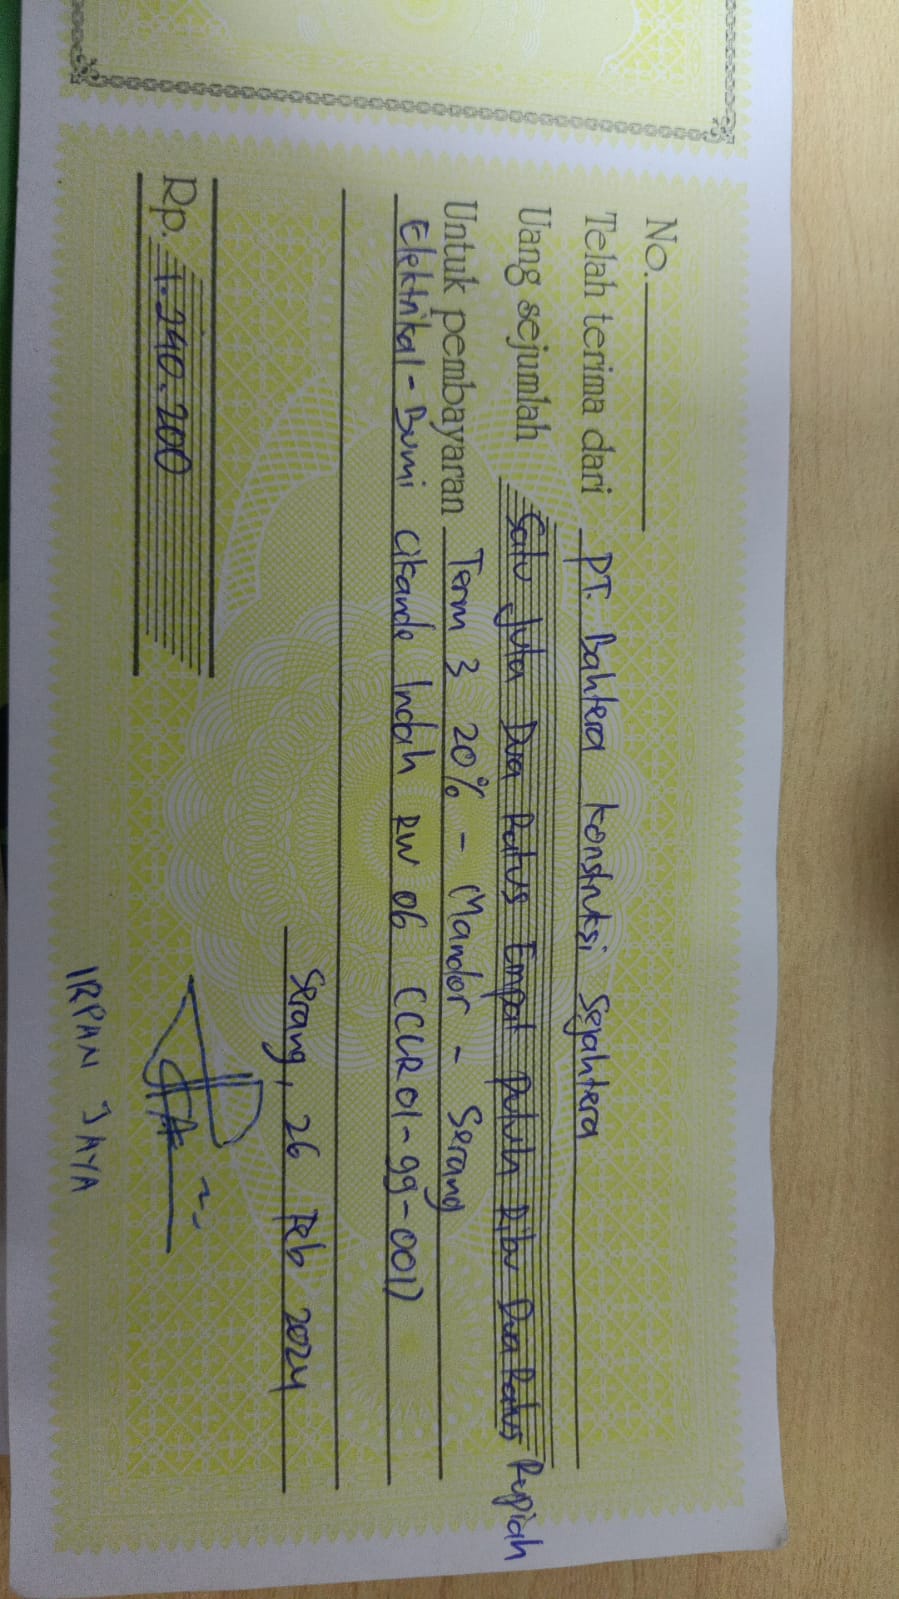 No.
Telah terima dari PT. Bahtera Konstruksi Sejahtera
Uang sejumlah Satu Juta Dua Ratus Empat Puluh Ribu Dua Ratus Rupiah
Untuk pembayaran Term 3 20% - Mandor - Serang
Elektrikal - Bumi Cikande Indah RW 06 (CCLR01-99-001)
Serang, 26 Feb 2024
Rp. 1.240.200
IRPAN JAYA